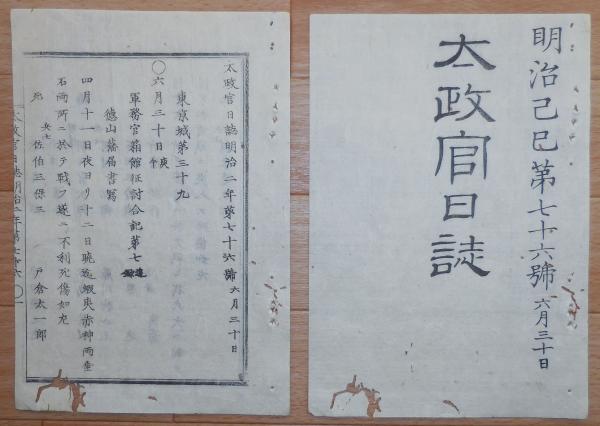 明治己巳第七十六號 六月三十日
太政官日誌
太政官日誌明治二年第七十六號 六月三十日
東京城第三十九
〇六月三十日庚午
軍務官箱館征討合記第七
徳山藩届書寫
四月十一日夜ヨリ十二日曉迄蝦夷赤神兩壘
石兩所ニ於テ戰フ遂ニ不利死傷如左
死 兵士 佐伯三保三 戸倉太一郎
太政官日誌明治二年第七十六 〇一